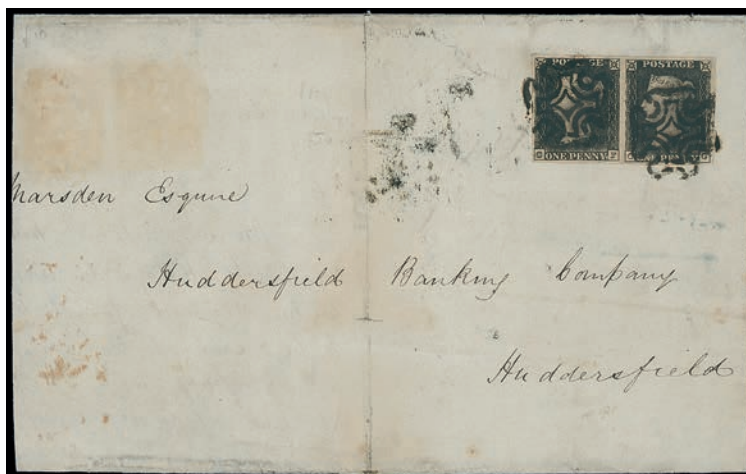 POSTAGE POSTAGE
ONE PENNY ONE PENNY
Marsden Esquire
Huddersfield Banking Company
Huddersfield